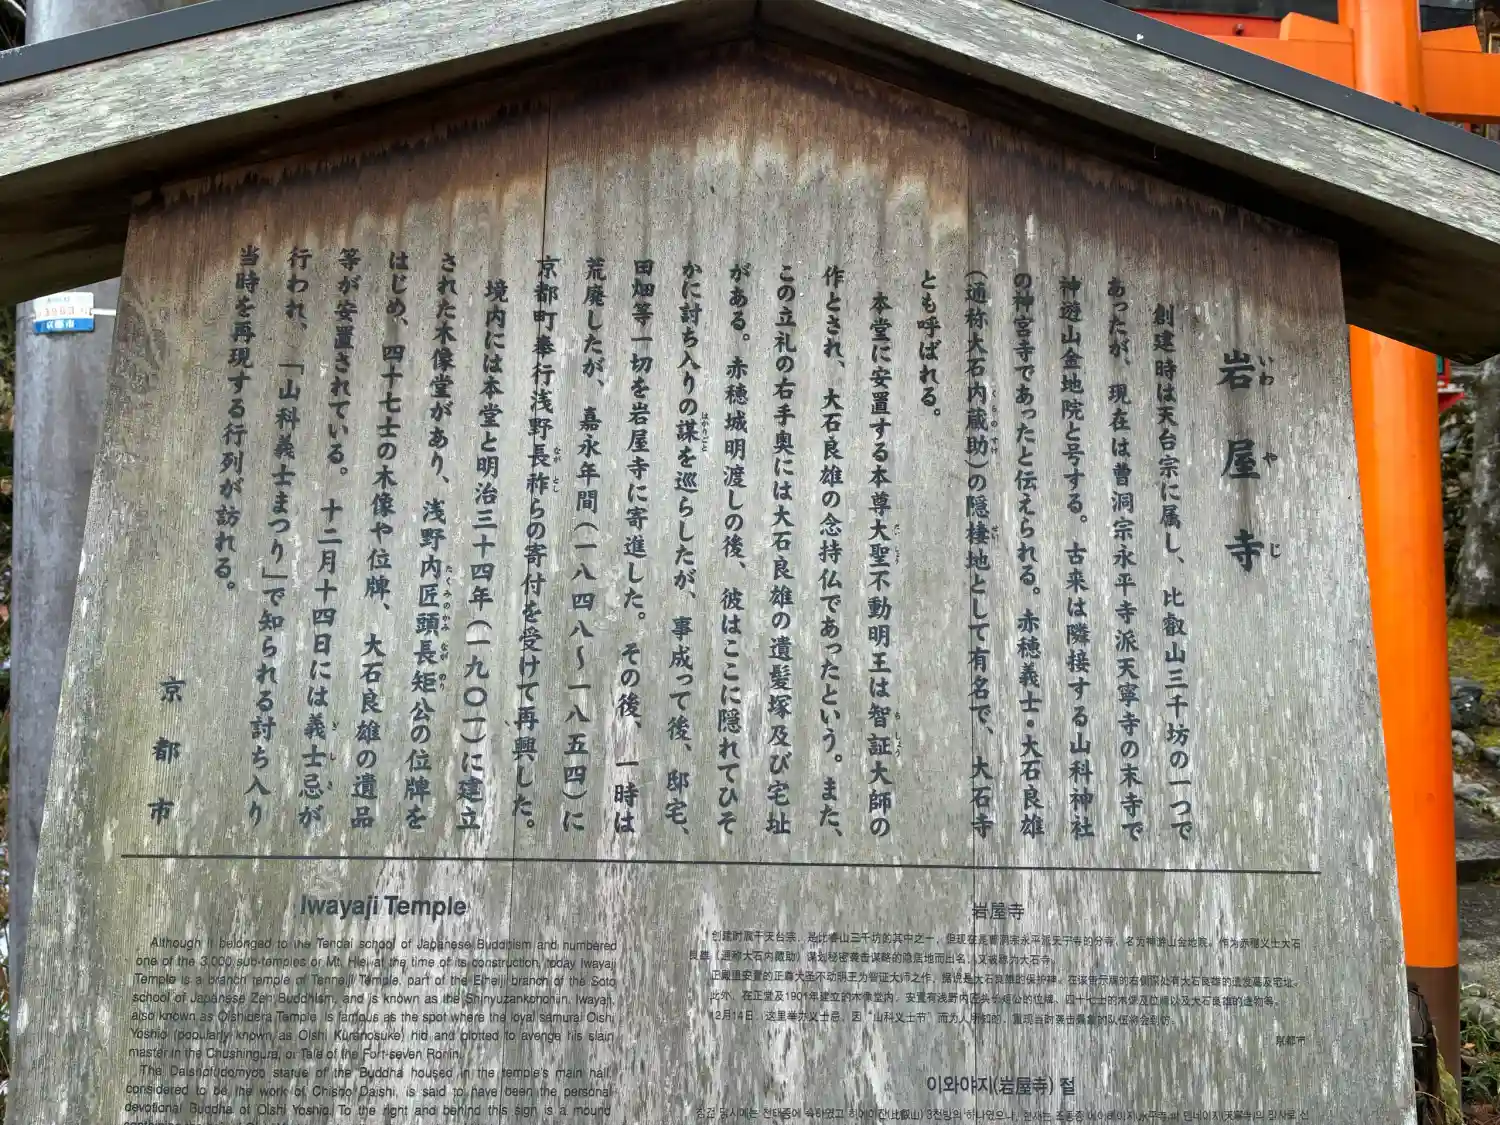 岩屋寺
いわ や じ
創建時は天台宗に属し、比叡山三千坊の一つで
あったが、現在は曹洞宗永平寺派天寧寺の末寺で
神遊山金地院と号する。古来は隣接する山科神社
の神宮寺であったと伝えられる。赤穂義士・大石良雄
(通称大石内蔵助)の隠棲地として有名で、大石寺
とも呼ばれる。
本堂に安置する本尊大聖不動明王は智証大師の
作とされ、大石良雄の念持仏であったという。また、
この立札の右手奥には大石良雄の遺髪塚及び宅址
がある。赤穂城明渡しの後、彼はここに隠れてひそ
かに討ち入りの謀を巡らしたが、事成って後、邸宅、
田畑等一切を岩屋寺に寄進した。その後、一時は
荒廃したが、嘉永年間(一八四八〜一八五四)に
京都町奉行浅野長祚らの寄付を受けて再興した。
境内には本堂と明治三十四年(一九〇一)に建立
された木像堂があり、浅野内匠頭長矩公の位牌を
はじめ、四十七士の木像や位牌、大石良雄の遺品
等が安置されている。十二月十四日には義士忌が
行われ、「山科義士まつり」で知られる討ち入り
当時を再現する行列が訪れる。
京都市
Iwayaji Temple
Although it belonged to the Tendai school of Japanese Buddhism and numbered
one of the 3,000 sub-temples or Mt. Hiei at the time of its construction, today Iwayaji
Temple is a branch temple of Tenneiji Temple, part of the Eiheiji branch of the Soto
school of Japanese Zen Buddhism, and is known as the Shinyuzankonohin. Iwayaji,
also known as Oishidera Temple, is famous as the spot where the loyal samurai Oishi
Yoshio (popularly known as Oishi Kuranosuke) hid and plotted to avenge his slain
master in the Chushingura, or Tale of the Fort-seven Ronin.
The Daishofudomyoo statue of the Buddha housed in the temple's main hall,
considered to be the work of Chisho Daishi, is said to have been the personal
devotional Buddha of Oishi Yoshio. To the right and behind this sign is a mound
岩屋寺
创建时属于天台宗，是比睿山三千坊的其中之一，但现在是曹洞宗永平派天宁寺的分寺，名为神游山金地院。作为赤穗义士大石
良雄（通称大石内藏助）谋划秘密袭击谋略的隐居地而出名，又被称为大石寺。
正殿里安置的正尊大圣不动明王为智证大师之作，据说是大石良雄的保护神。在该告示牌的右侧深处有大石良雄的遗发冢及宅址。
此外，在正堂及1901年建立的木像堂内，安置有浅野内匠头长矩公的位牌、四十七士的木像及位牌以及大石良雄的遗物等。
12月14日，这里举办义士忌，因“山科义士节”而为人所知的，重现当时袭击景象的队伍将会到访。
京都市
이와야지(岩屋寺) 절